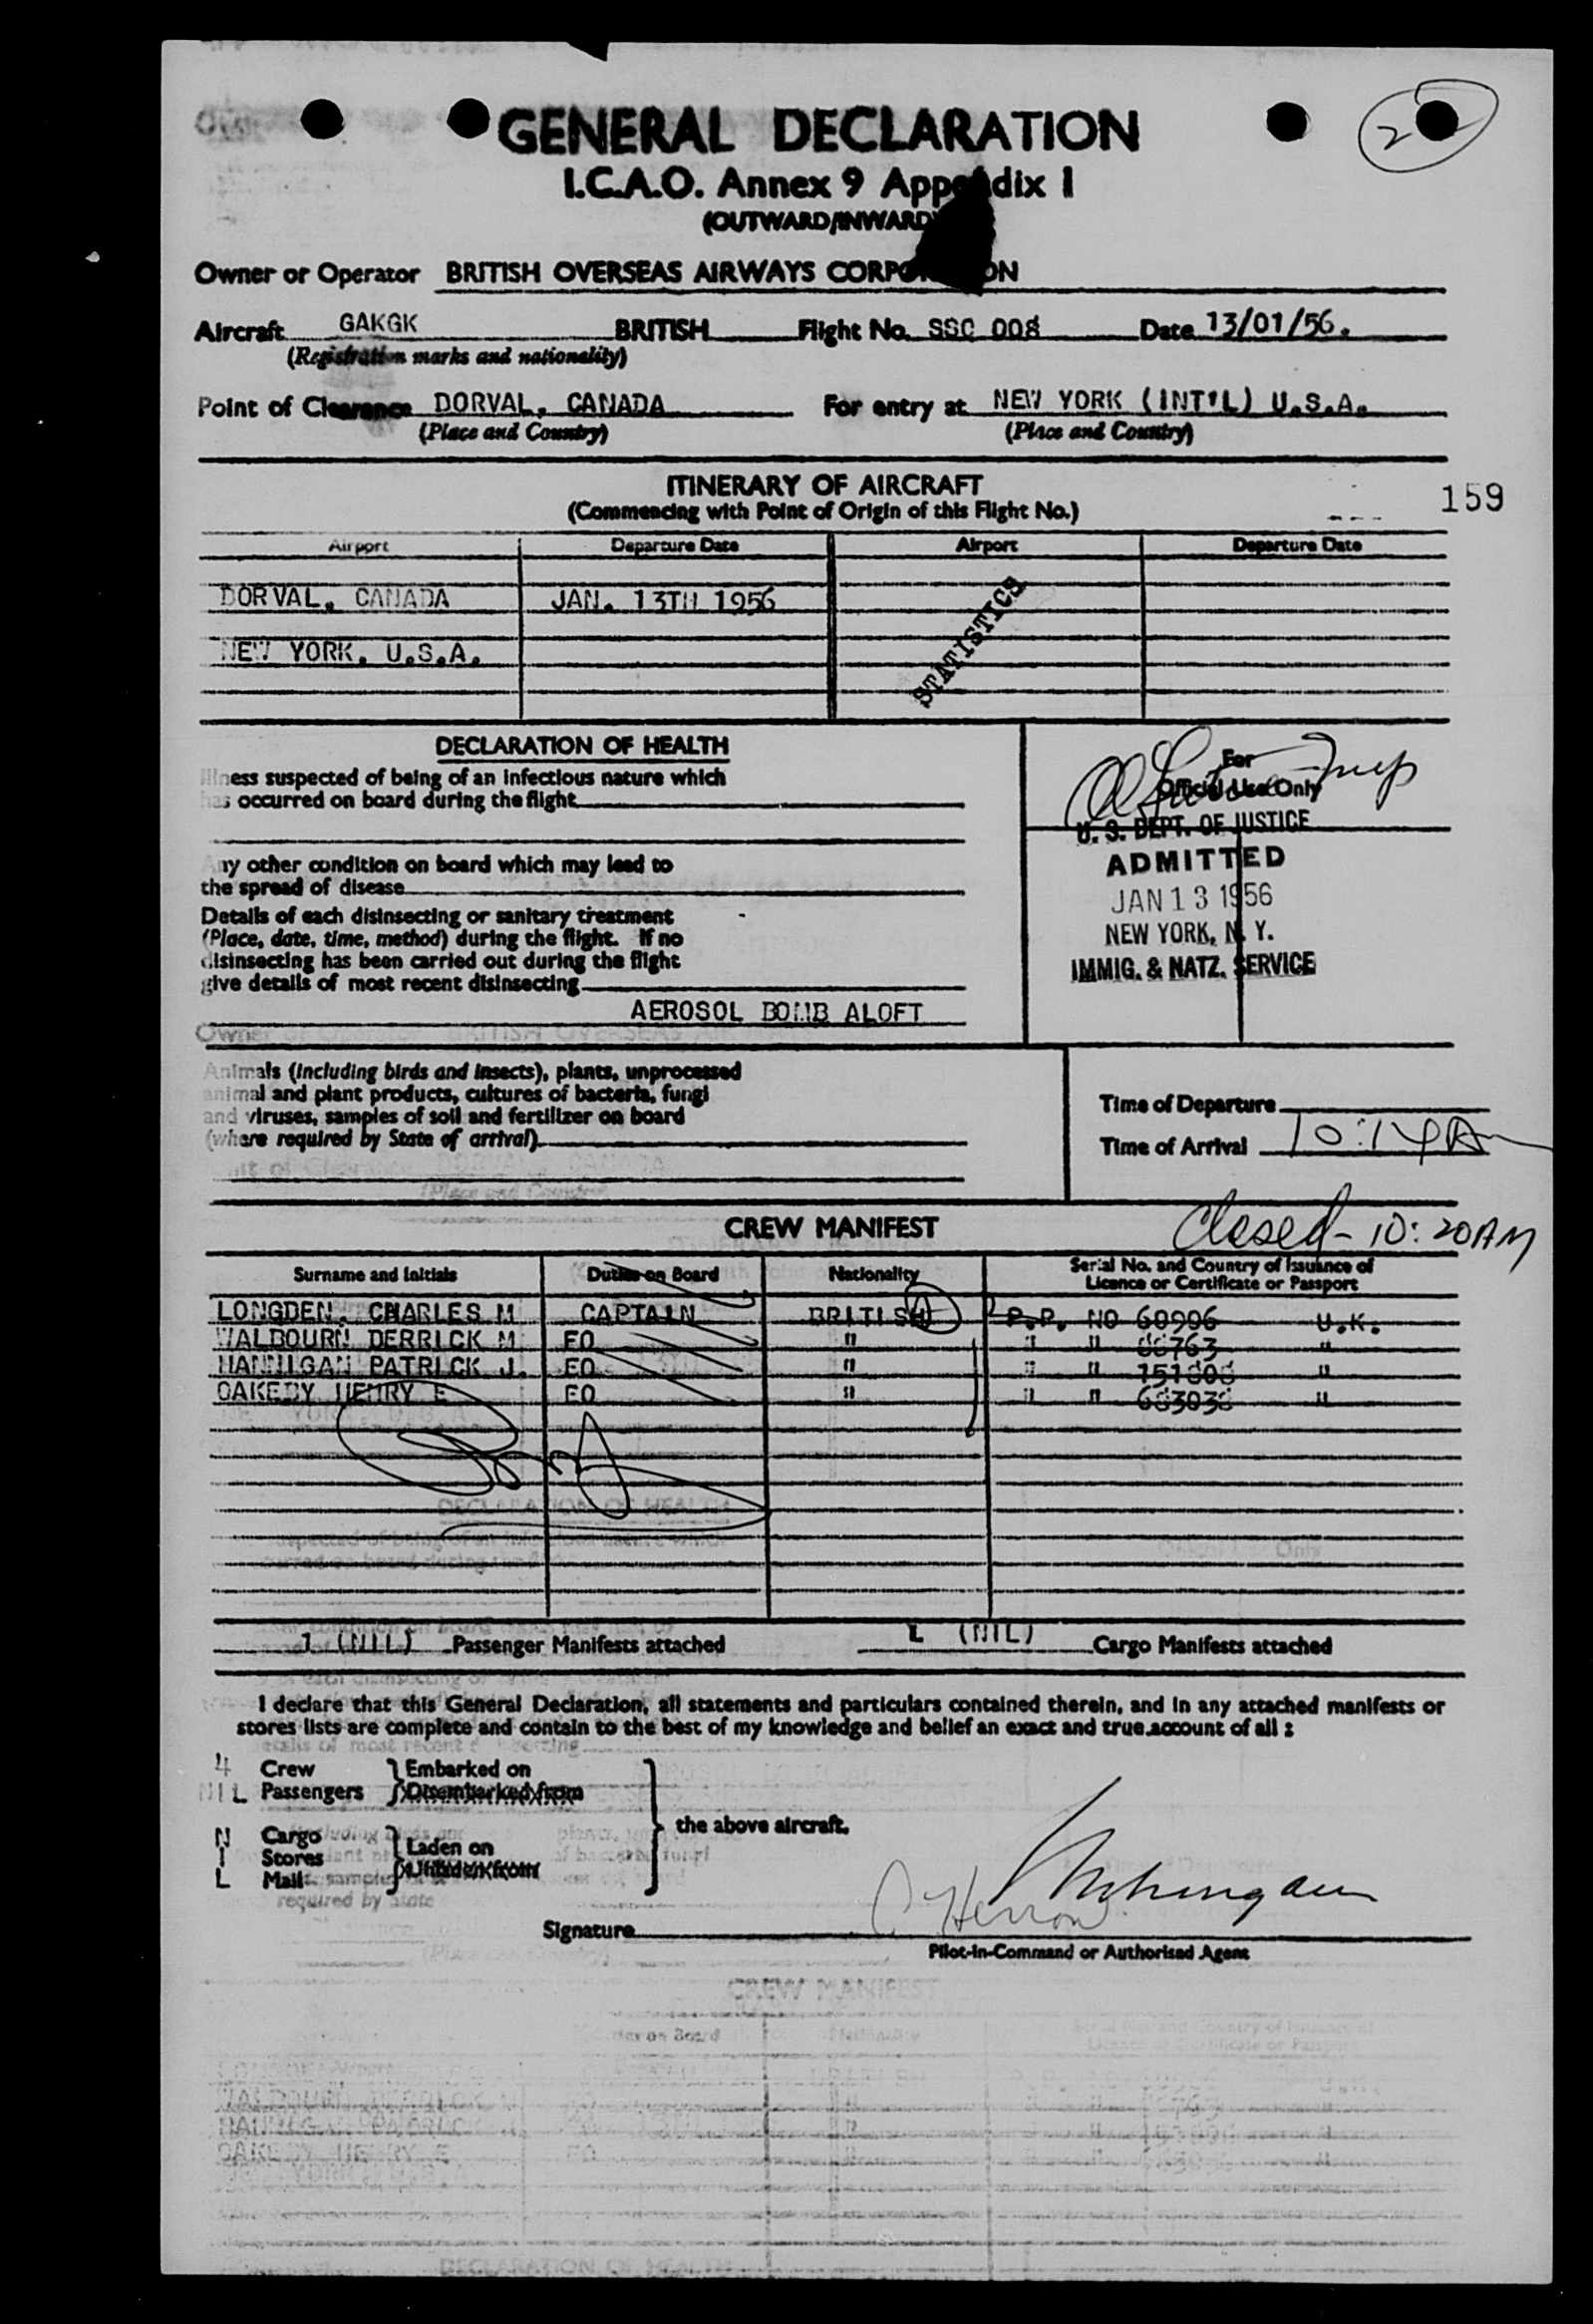 GENERAL DECLARATION
2
I.C.A.O. Annex 9 Appendix I
(OUTWARD/INWARD)
Owner or Operator BRITISH OVERSEAS AIRWAYS CORPORATION
Aircraft GAKGK BRITISH Flight No. SSC 008 Date 13/01/56.
(Registration marks and nationality)
Point of Clearance DORVAL, CANADA For entry at NEW YORK (INT'L) U.S.A.
(Place and Country) (Place and Country)
ITINERARY OF AIRCRAFT
159
(Commencing with Point of Origin of this Flight No.)
Airport Departure Date Airport Departure Date
DORVAL, CANADA JAN. 13TH 1956
STATISTICS
NEW YORK, U.S.A.
DECLARATION OF HEALTH
Illness suspected of being of an infectious nature which
has occurred on board during the flight
Any other condition on board which may lead to
the spread of disease
Details of each disinsecting or sanitary treatment
(Place, date, time, method) during the flight. If no
disinsecting has been carried out during the flight
give details of most recent disinsecting
AEROSOL BOMB ALOFT
For
Official Use Only
U. S. DEPT. OF JUSTICE
ADMITTED
JAN 13 1956
NEW YORK, N. Y.
IMMIG. & NATZ. SERVICE
Animals (including birds and insects), plants, unprocessed
animal and plant products, cultures of bacteria, fungi
and viruses, samples of soil and fertilizer on board
(where required by State of arrival)
Time of Departure
Time of Arrival 10:14 A
Closed - 10:20 AM
CREW MANIFEST
Surname and Initials Duties on Board Nationality Serial No. and Country of Issuance of
Licence or Certificate or Passport
LONGDEN, CHARLES M CAPTAIN BRITISH P.P. NO 60906 U.K.
WALBOURN DERRICK M FO " " " "
HANNIGAN PATRICK J. EO " " " 151808 "
OAKEBY HENRY E EO " " " 683038 "
1 (NIL) Passenger Manifests attached 1 (NIL) Cargo Manifests attached
I declare that this General Declaration, all statements and particulars contained therein, and in any attached manifests or
stores lists are complete and contain to the best of my knowledge and belief an exact and true account of all :
4 Crew Embarked on
NIL Passengers Disembarked from
the above aircraft.
N Cargo
I Stores Laden on
L Mail Unladen from
Signature
Pilot-in-Command or Authorised Agent